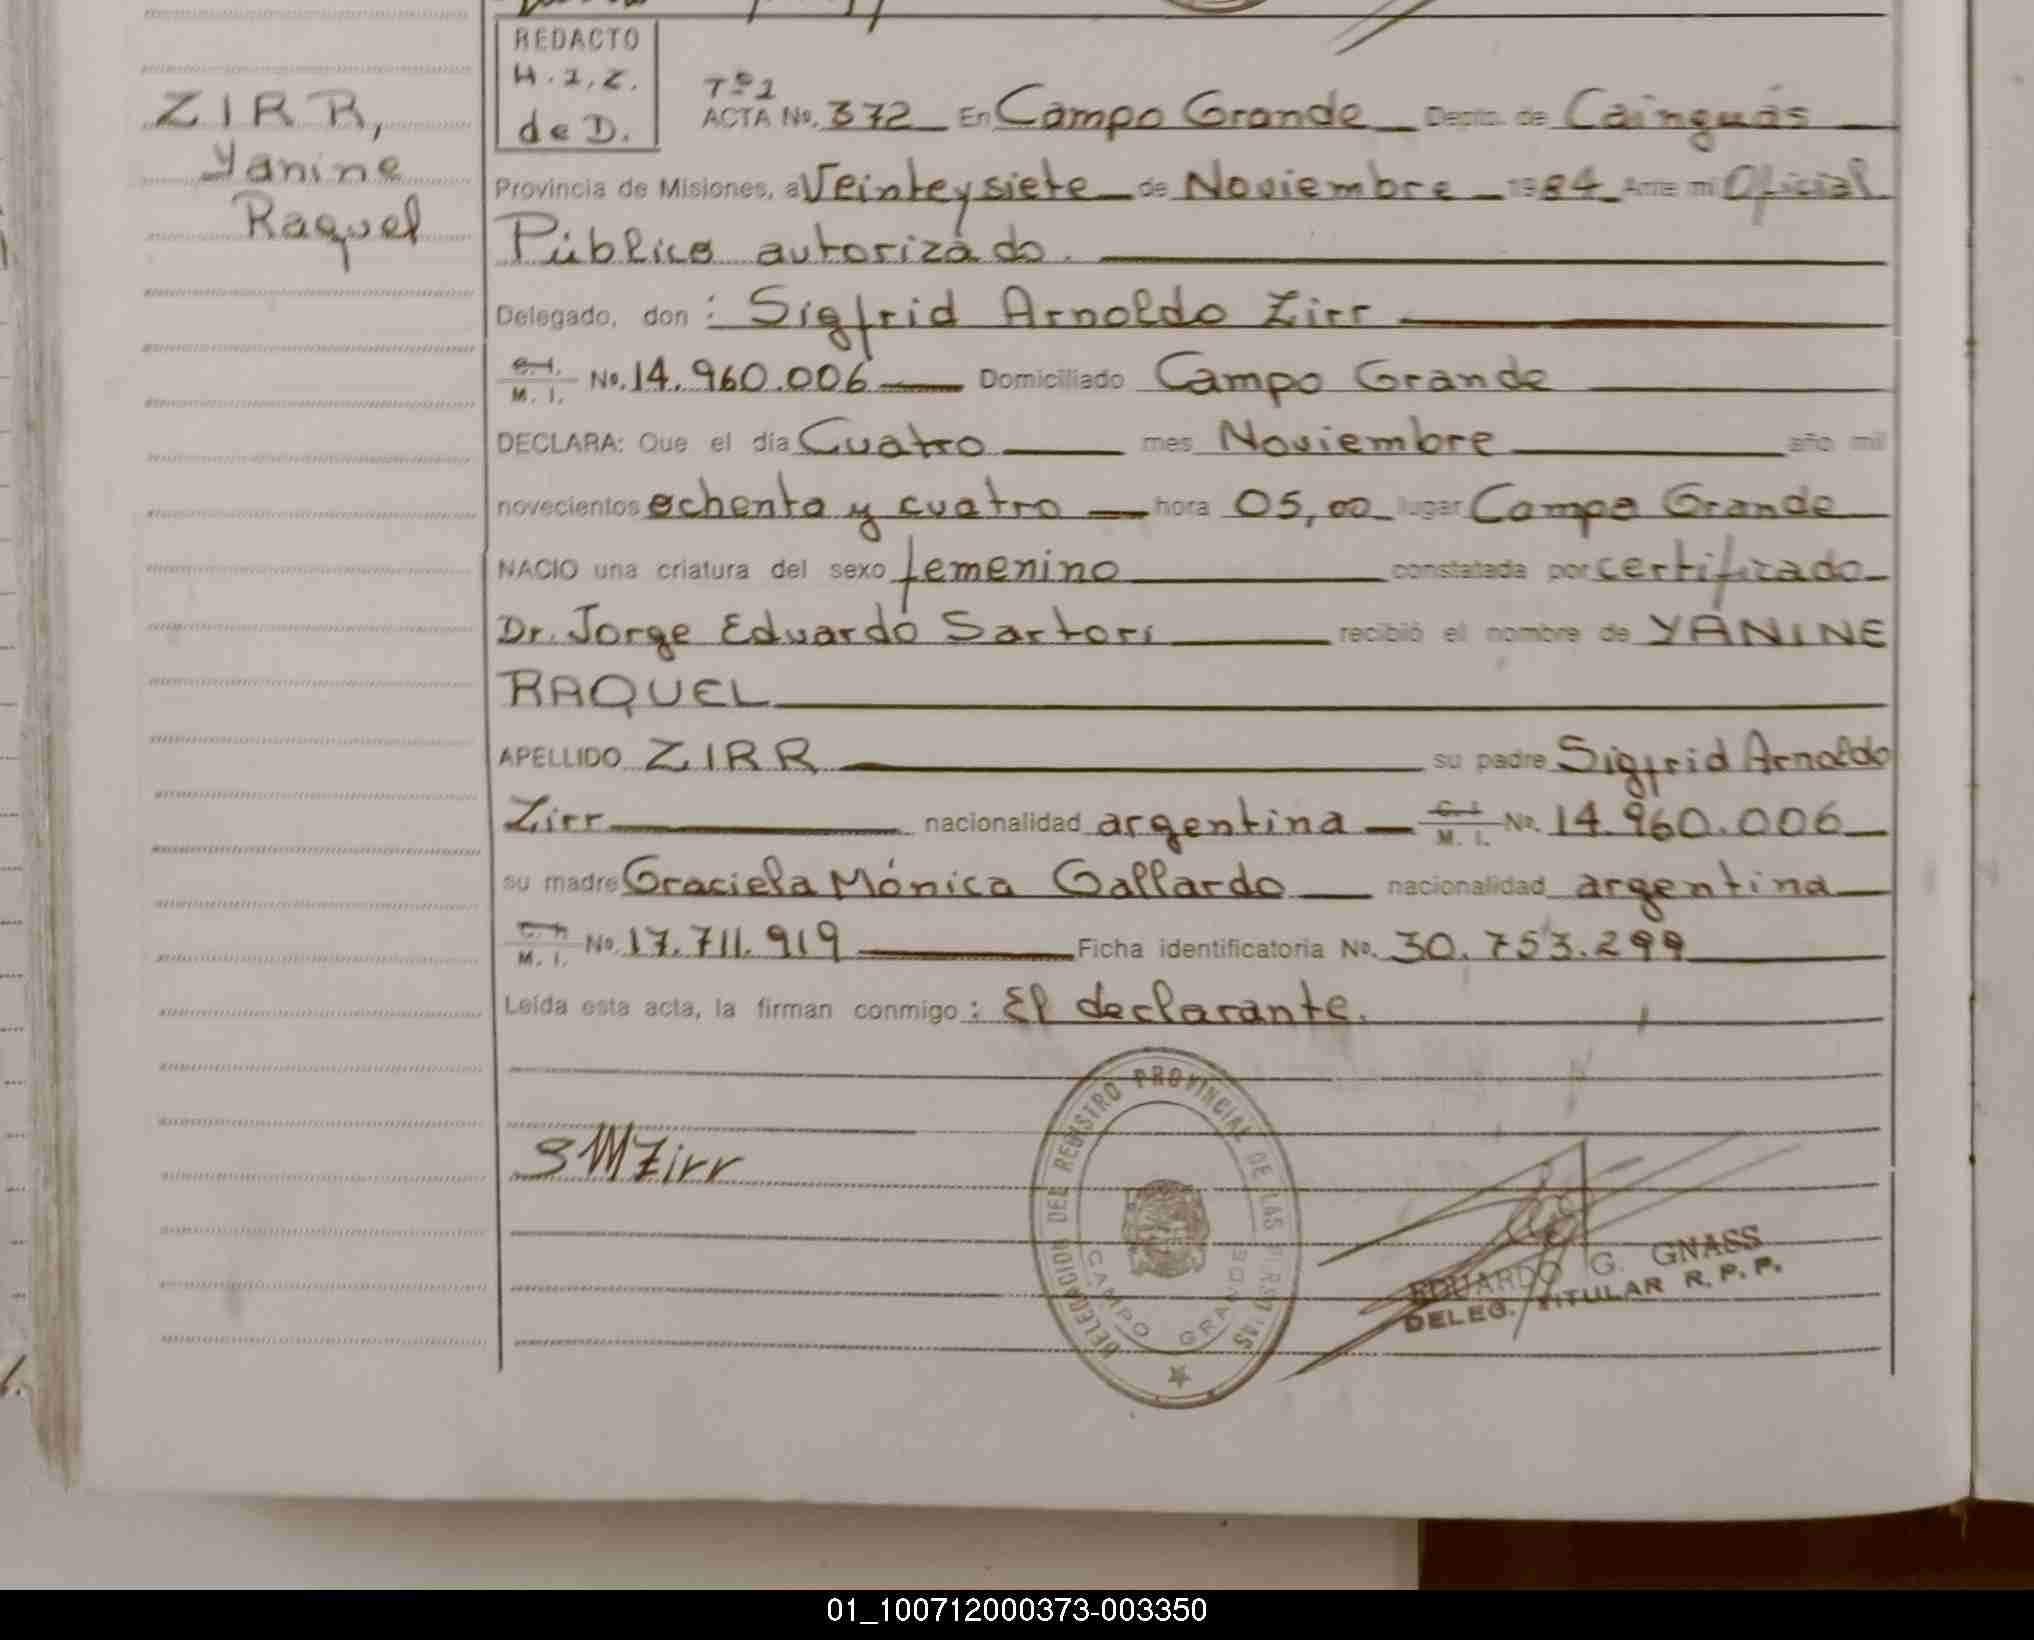 ZIRR,
Yanine
Raquel
REDACTO
H.I.Z.
de D.
Tº 1
ACTA No. 372 En Campo Grande Depto. de Cainguás
Provincia de Misiones, a Veinteysiete de Noviembre 1984 Ante mi Oficial
Público autorizado.
Delegado, don: Sigfrid Arnoldo Zirr
C.I. M. I. No. 14.960.006 Domiciliado Campo Grande
DECLARA: Que el día Cuatro mes Noviembre año mil
novecientos ochenta y cuatro hora 05,00 lugar Campo Grande
NACIO una criatura del sexo femenino constatada por certificado
Dr. Jorge Eduardo Sartori recibió el nombre de YANINE
RAQUEL
APELLIDO ZIRR su padre Sigfrid Arnoldo
Zirr nacionalidad argentina C.I. M. I. No. 14.960.006
su madre Graciela Mónica Gallardo nacionalidad argentina
C.I. M. I. No. 17.711.919 Ficha identificatoria No. 30.753.299
Leída esta acta, la firman conmigo: El declarante.
DELEGACION DEL REGISTRO PROVINCIAL DE LAS PERSONAS
CAMPO GRANDE
Zirr
EDUARDO G. GNASS
DELEG. TITULAR R. P. P.
01_100712000373-003350